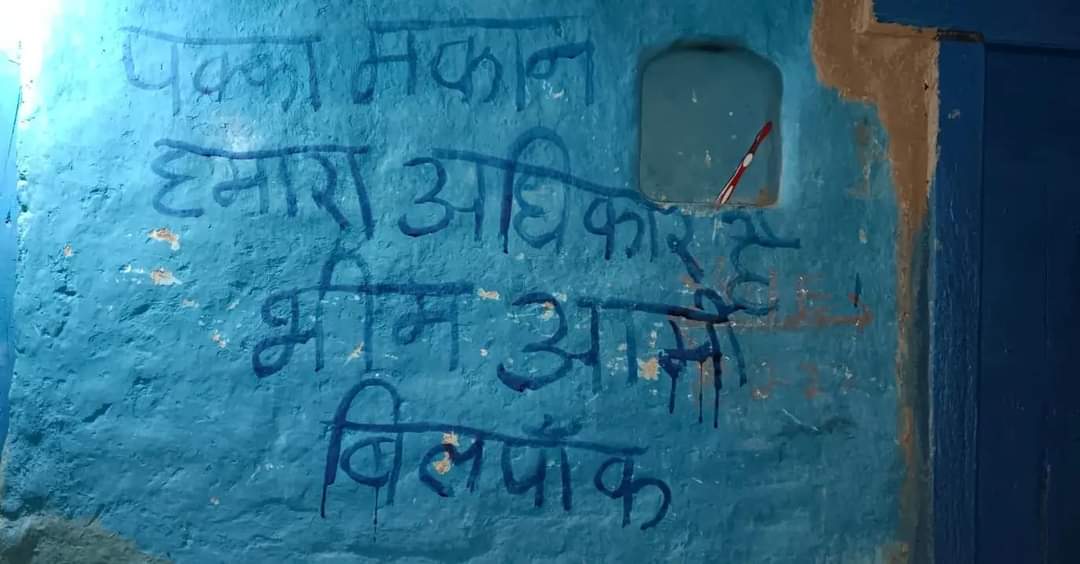 पक्का मकान
हमारा अधिकार है
भीम आर्मी
बिलपाँक